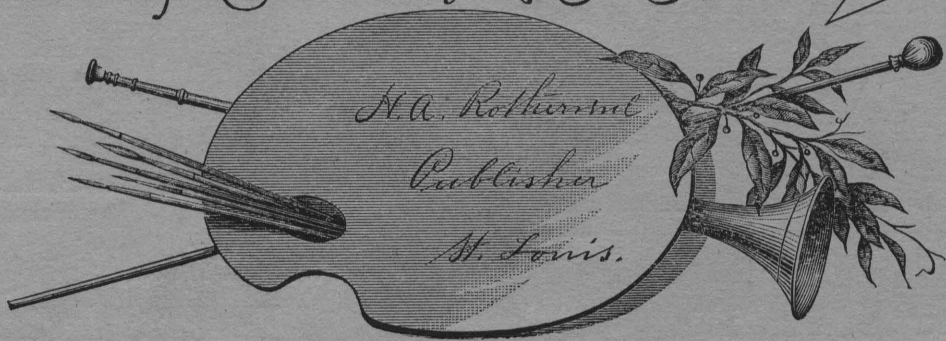 H. A. Rothermel
Publisher
St. Louis.